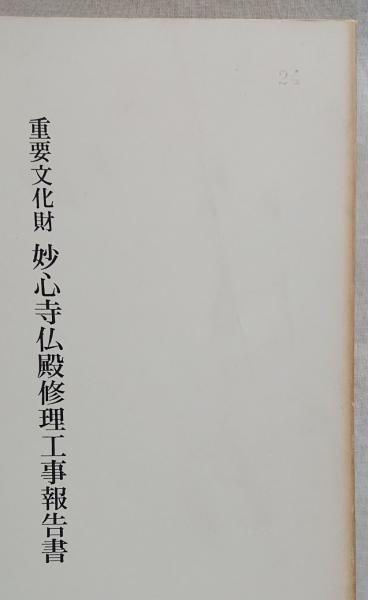 24
重要文化財 妙心寺仏殿修理工事報告書